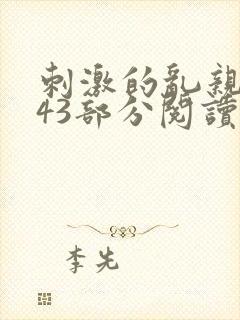 刺激的亂親
43部分閱讀
李先